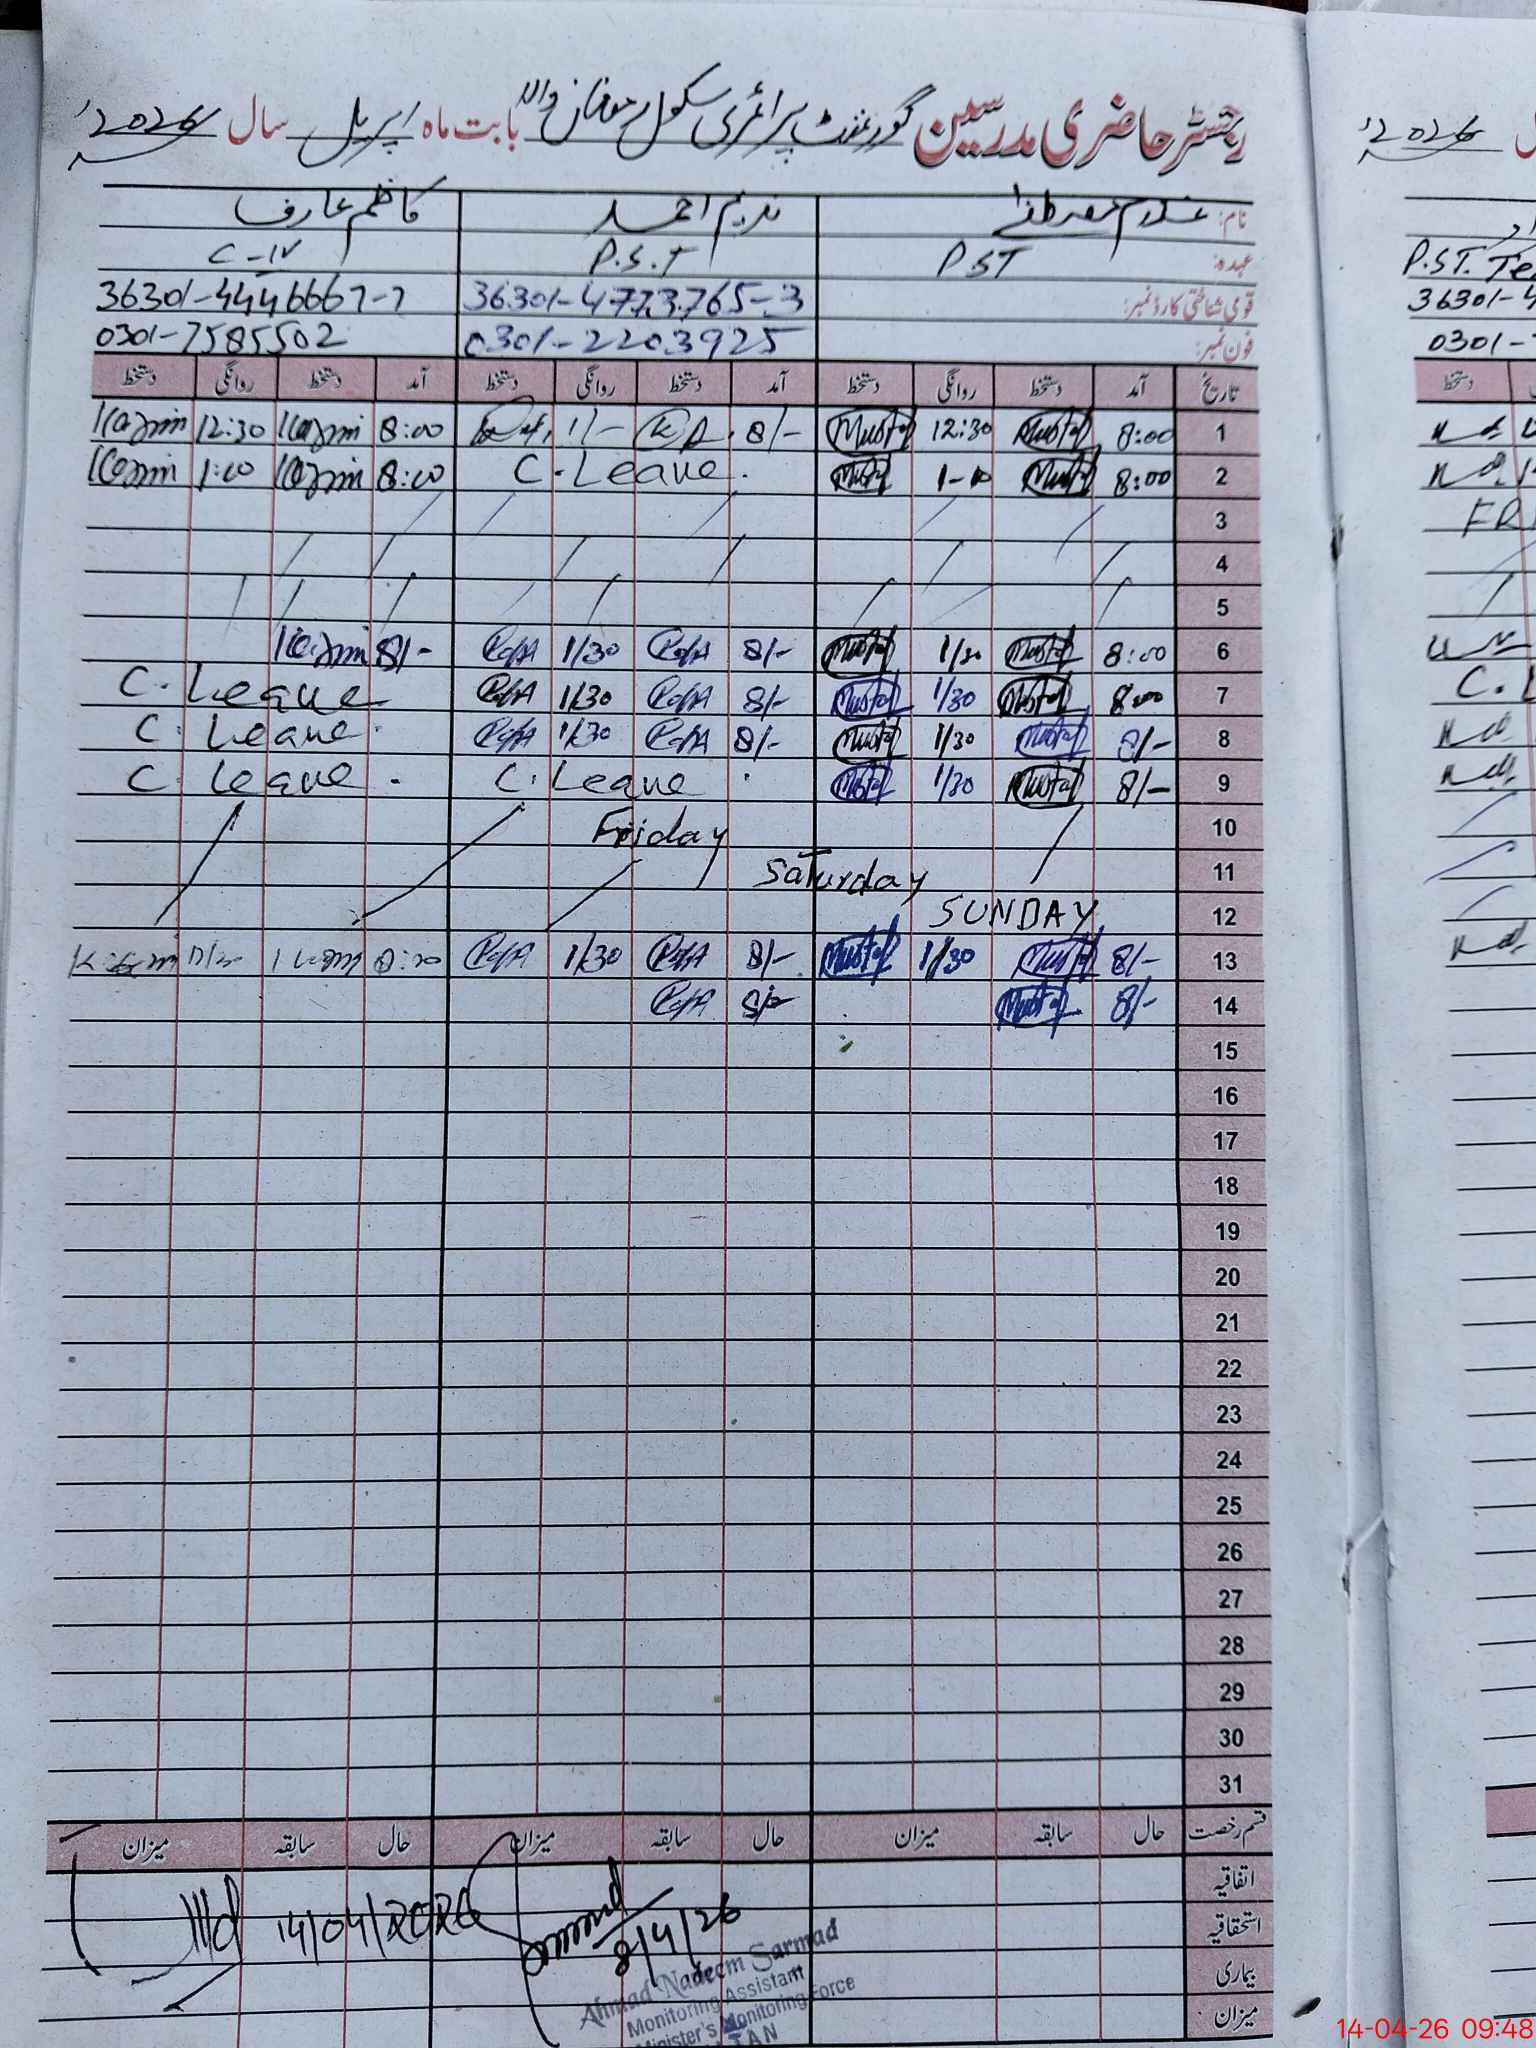 رجسٹر حاضری مدرسین گورنمنٹ پرائمری سکول والا بابت ماہ اپریل سال 2026
نام: غلام مصطفیٰ ندیم احمد کاظم عارف
عہدہ: PST P.S.T C-IV
قومی شناختی کارڈ نمبر: 36301-4773765-3 36301-4446667-7
فون نمبر: 0301-2203925 0301-7585502
تاریخ آمد دستخط روانگی دستخط آمد دستخط روانگی دستخط آمد دستخط روانگی دستخط
1 8:00 Mustaf 12:30 Mustaf 8/- 1/- 8:00 Kazmi 12:30 Kazmi
2 8:00 Mustaf 1-10 Mustaf C.Leave. 8:00 Kazmi 1:10 Kazmi
3
4
5
6 8:00 Mustaf 1/30 Mustaf 8/- 1/30 8/- Kazmi
7 8:00 Mustaf 1/30 Mustaf 8/- 1/30 C.Leave
8 8/- Mustaf 1/30 Mustaf 8/- 1/30 C.Leave.
9 8/- Mustaf 1/30 Mustaf C.Leave. C.Leave.
10 Friday
11 Saturday
12 SUNDAY
13 8/- Mustaf 1/30 Mustaf 8/- 1/30 8:00 Kazmi
14 8/- Mustaf 8/-
15
16
17
18
19
20
21
22
23
24
25
26
27
28
29
30
31
قسم رخصت حال سابقہ میزان حال سابقہ میزان حال سابقہ میزان
اتفاقیہ
استحقاقیہ
بیماری
میزان
14/04/2026
8/4/26
Ahmad Nadeem Sarmad
Monitoring Assistant
Minister's Monitoring Force
TAN
2026 سال
P.ST. Te
36301-4
0301-7
دستخط
FR
C.L
14-04-26 09:48